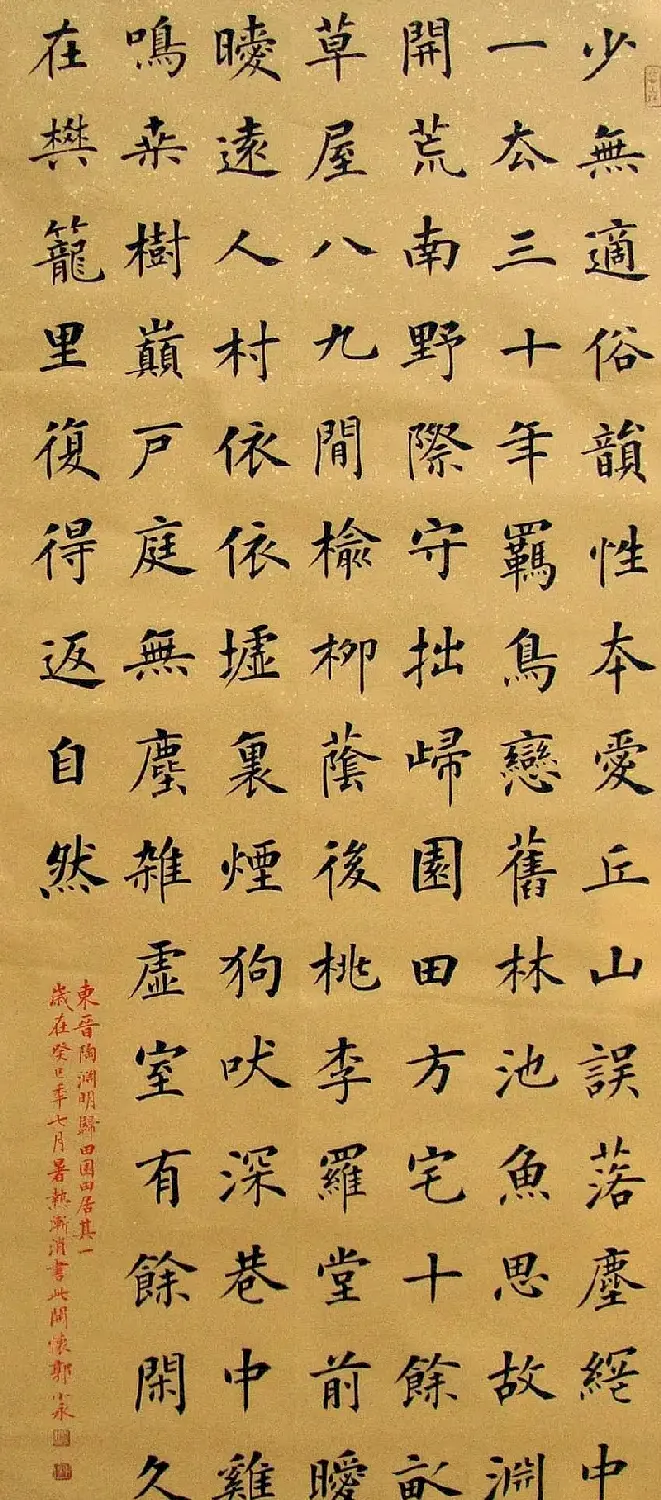 少無適俗韻性本愛丘山誤落塵網中
一去三十年羈鳥戀舊林池魚思故淵
開荒南野際守拙歸園田方宅十餘畝
草屋八九間榆柳蔭後桃李羅堂前曖
曖遠人村依依墟裏煙狗吠深巷中雞
鳴桒樹巔戶庭無塵雜虛室有餘閑久
在樊籠里復得返自然
東晉陶淵明歸田園田居其一
歲在癸巳年七月暑熱漸消書此開懷郭小泉